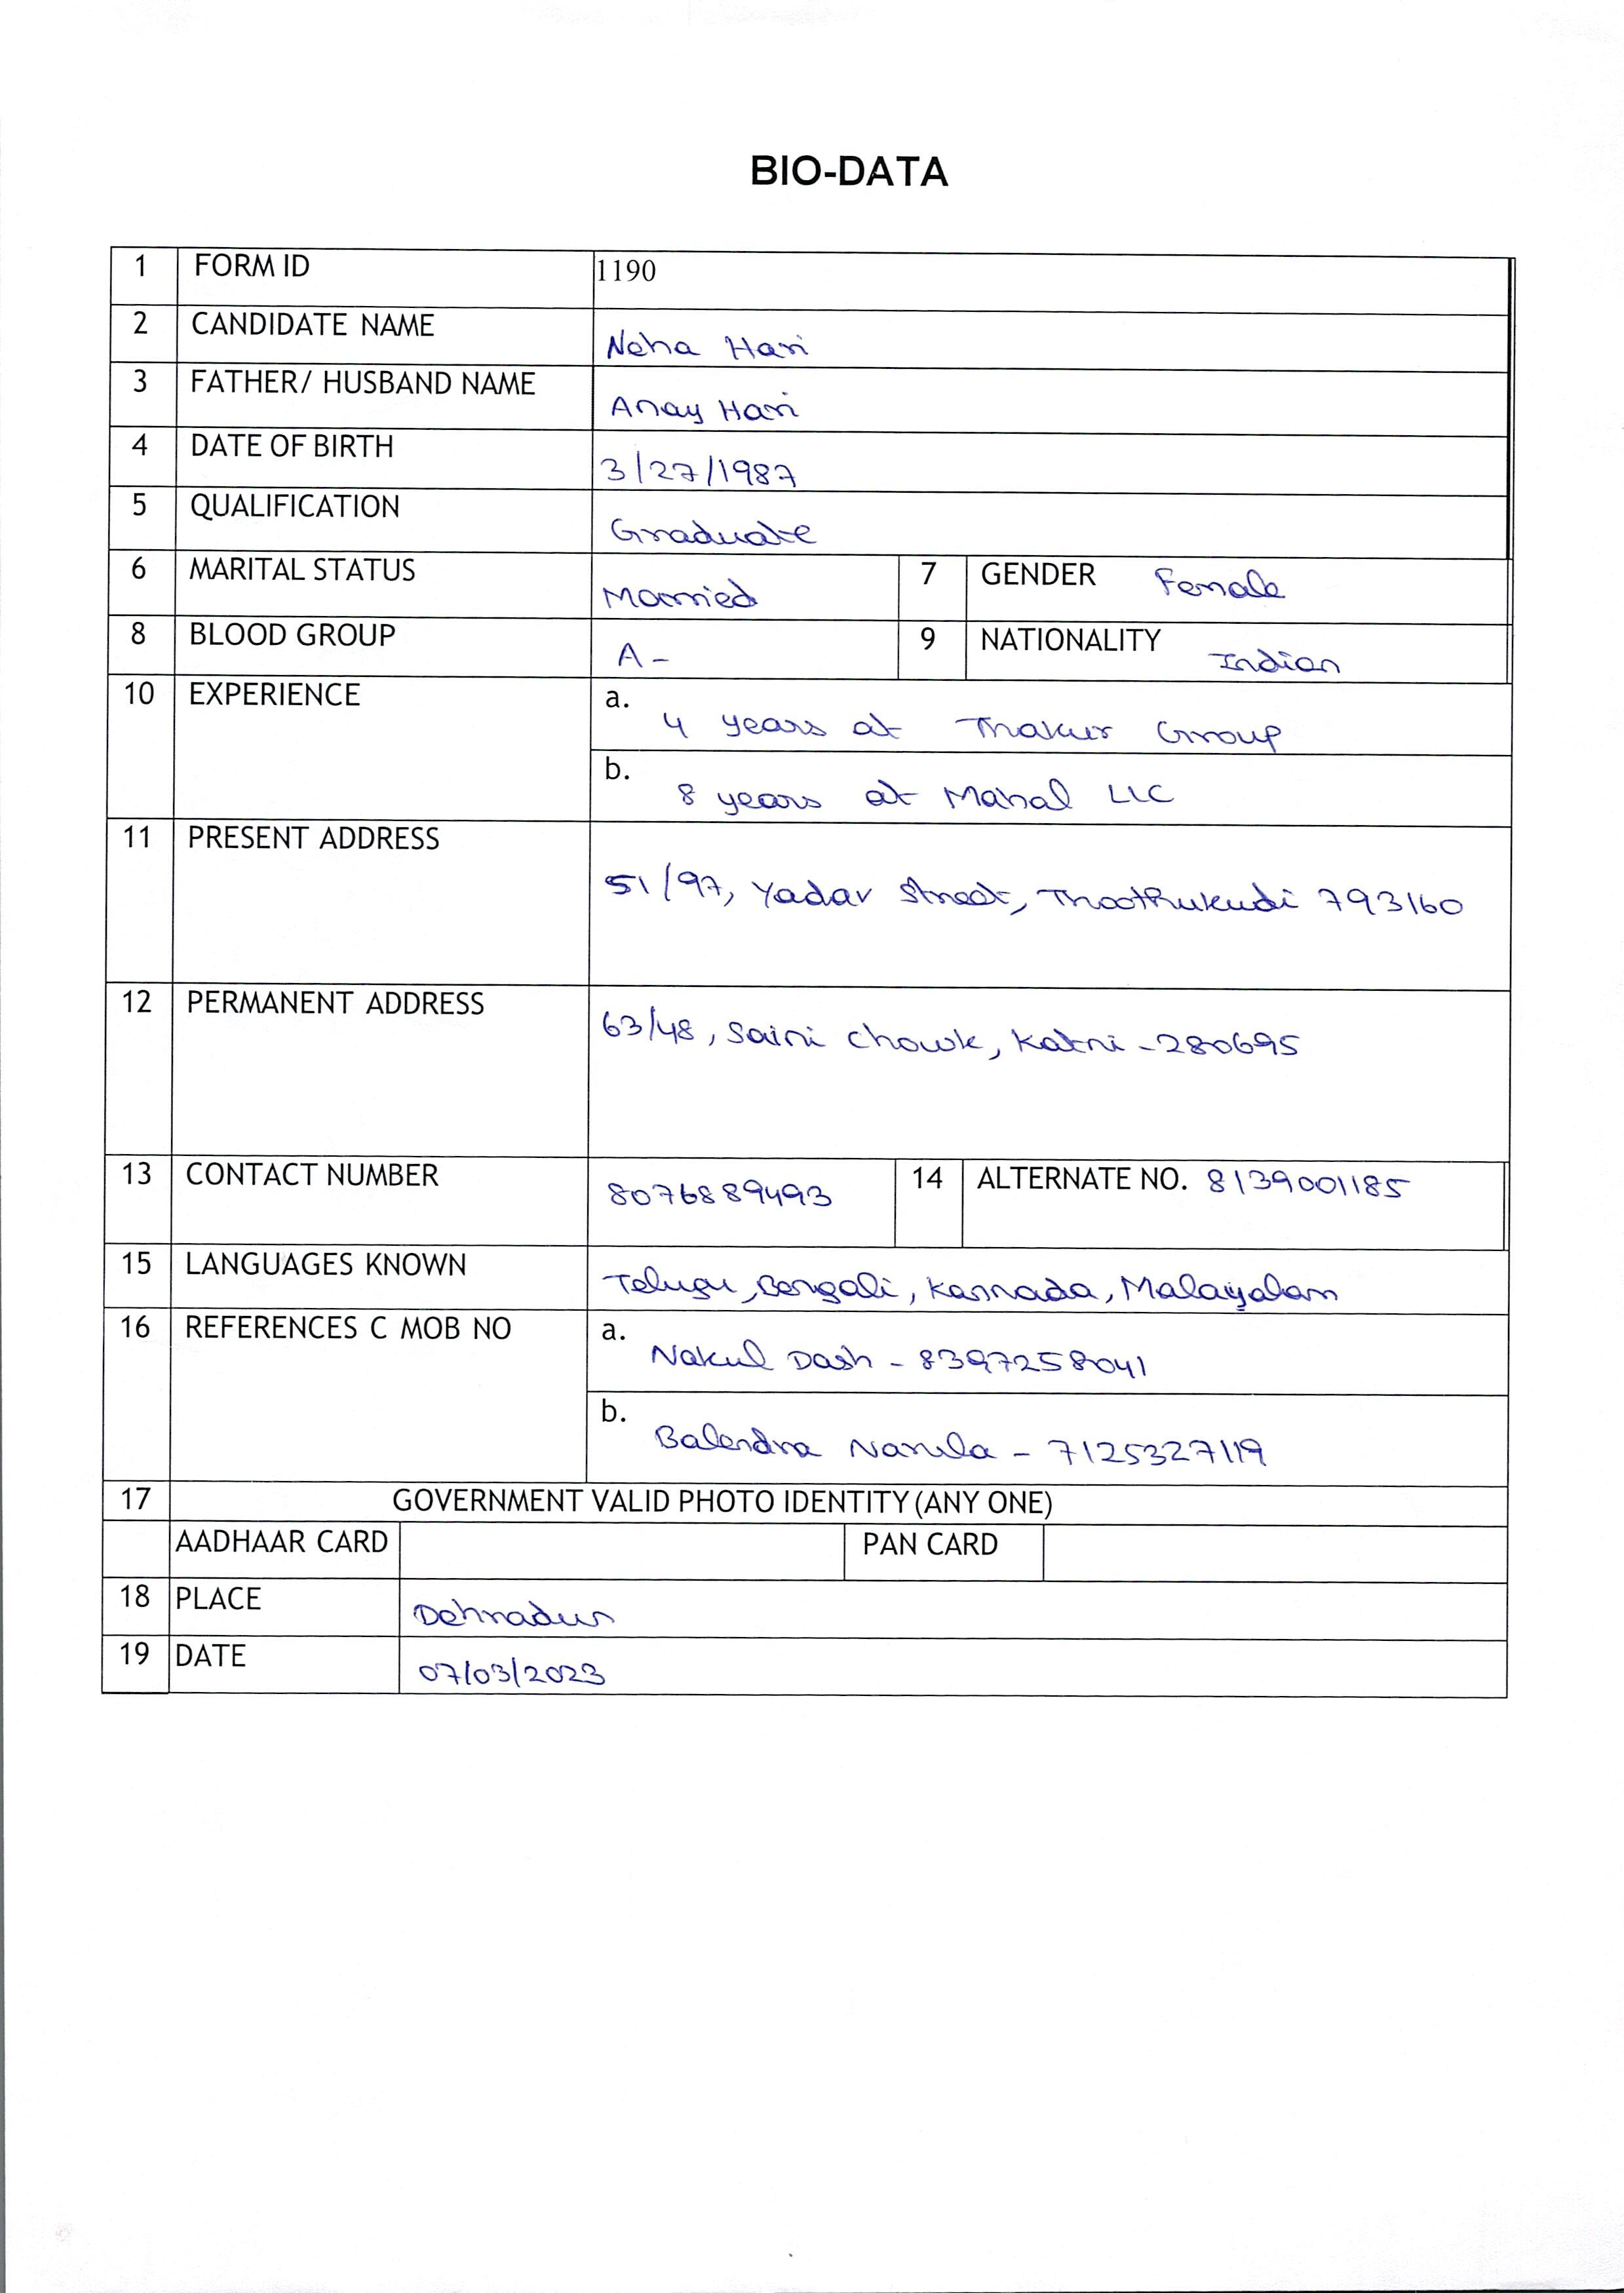 BIO-DATA
1 FORM ID 1190
2 CANDIDATE NAME Neha Hari
3 FATHER/ HUSBAND NAME Anay Hari
4 DATE OF BIRTH 3/27/1987
5 QUALIFICATION Graduate
6 MARITAL STATUS Married 7 GENDER Female
8 BLOOD GROUP A- 9 NATIONALITY Indian
10 EXPERIENCE a. 4 years at Thakur Group
b. 8 years at Mahal LLC
11 PRESENT ADDRESS 51/97, Yadav Street, Thoothukudi 793160
12 PERMANENT ADDRESS 63/48, Saini Chowk, Katni - 280695
13 CONTACT NUMBER 8076889493 14 ALTERNATE NO. 8139001185
15 LANGUAGES KNOWN Telugu, Bengali, Kannada, Malayalam
16 REFERENCES C MOB NO a. Nakul Dash - 8397258041
b. Balendra Narula - 7125327119
17 GOVERNMENT VALID PHOTO IDENTITY (ANY ONE)
AADHAAR CARD PAN CARD
18 PLACE Dehradun
19 DATE 07/03/2023